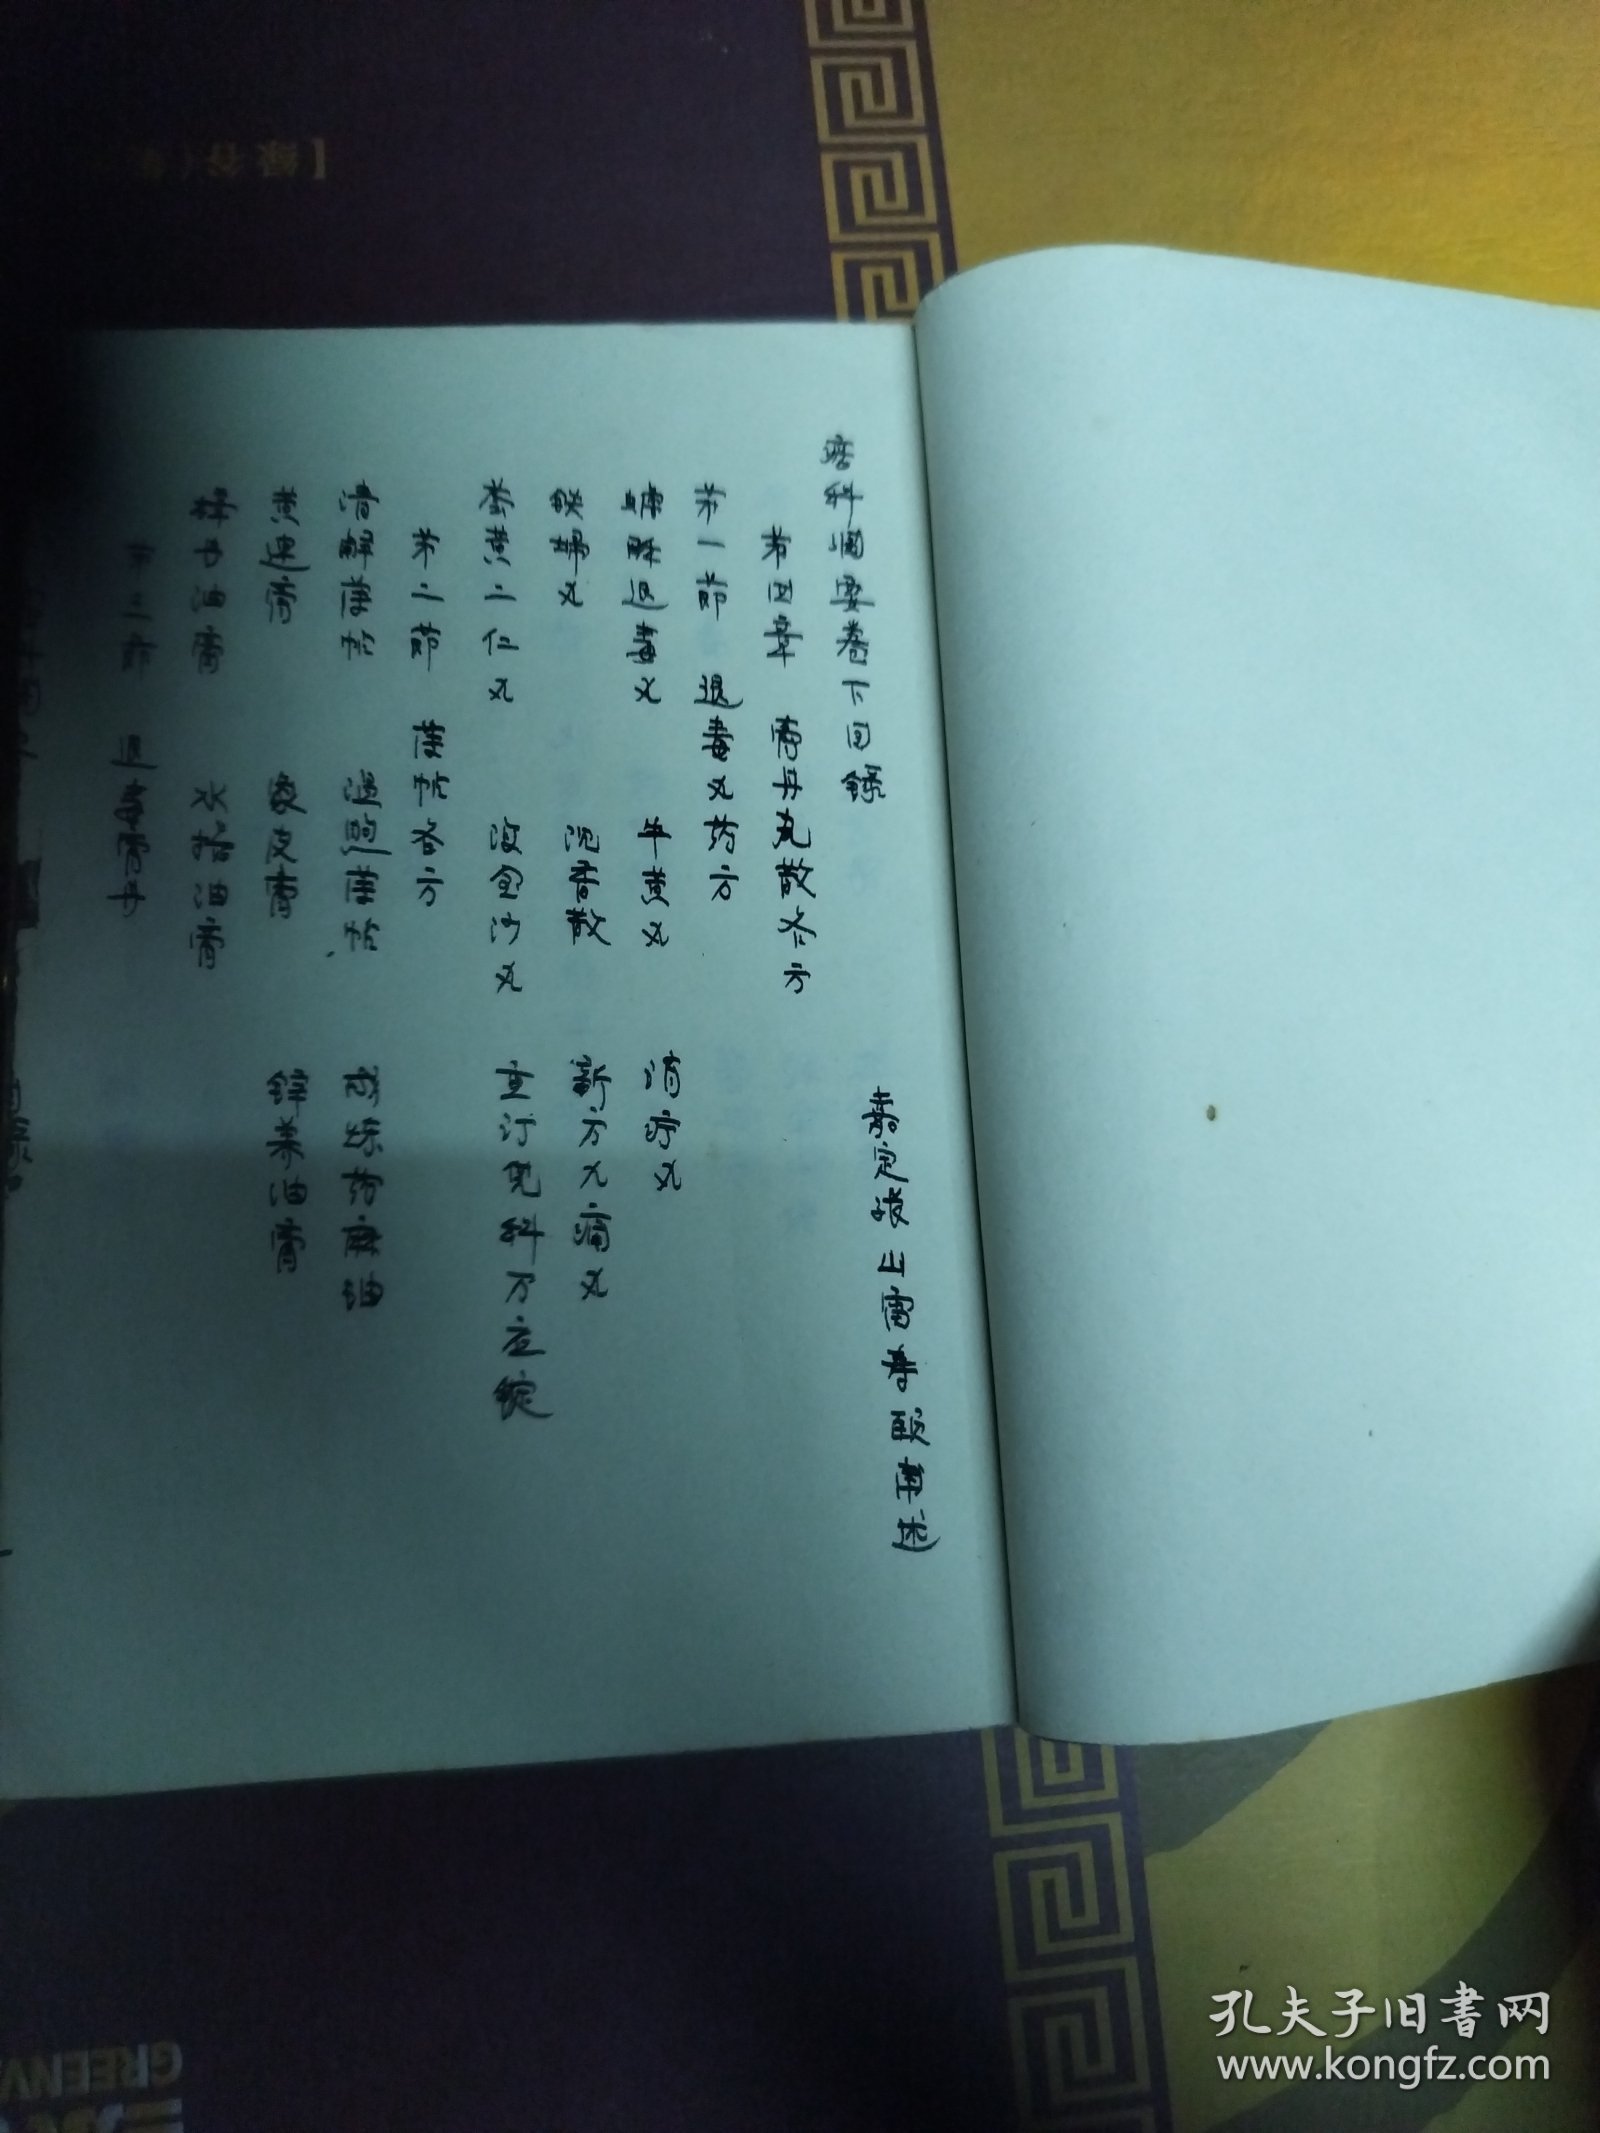 疡科纲要卷下目録
嘉定张山雷寿颐萆述
苐四章 膏丹丸散各方
苐一節 退毒丸药方
蟾酥退毒丸 牛黄丸 消疔丸
铁婦丸 沉香散 新方九痛丸
苓黄二仁丸 滚金沙丸 重订兒科万应锭
苐二節 薄帖各方
清解薄帖 温煦薄帖 咸炼药麻油
黄連膏 象皮膏 锌养油膏
樟丹油膏 水楊油膏
苐三節 退毒膏丹
孔夫子旧书网
www.kongfz.com
GREENV